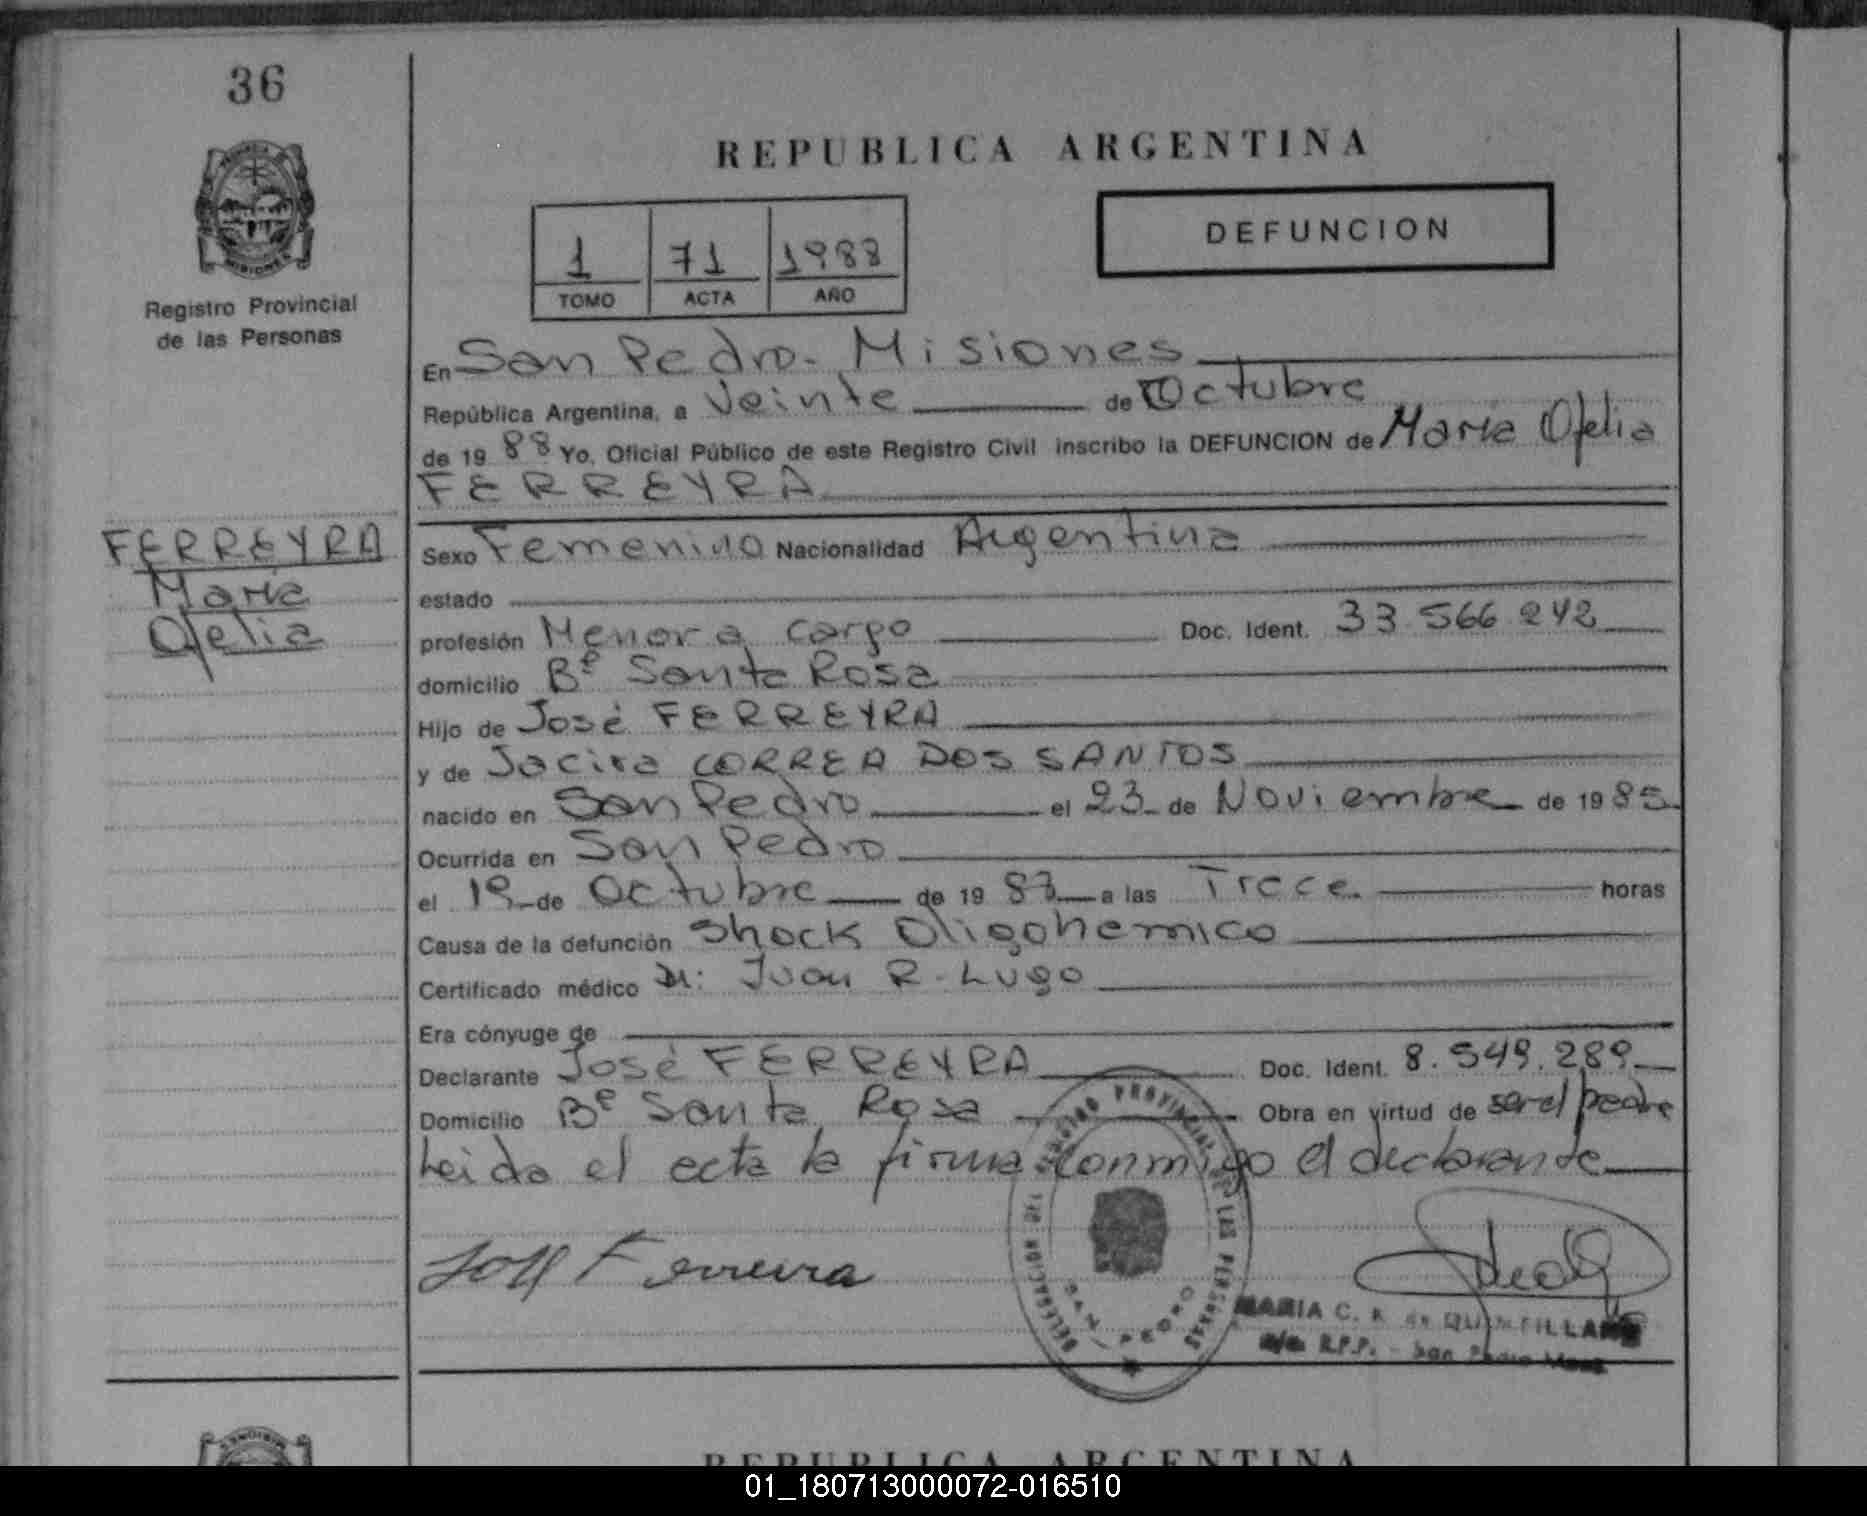 36
REPUBLICA ARGENTINA
1 71 1988
TOMO ACTA AÑO
DEFUNCION
MISIONES
Registro Provincial
de las Personas
En San Pedro - Misiones
República Argentina, a Veinte de Octubre
de 19 88 Yo, Oficial Público de este Registro Civil inscribo la DEFUNCION de Maria Ofelia
FERREYRA
FERREYRA
Maria
Ofelia
Sexo Femenino Nacionalidad Argentina
estado
profesión Menor a cargo Doc. Ident. 33.566.242
domicilio Bº Santa Rosa
Hijo de José FERREYRA
y de Jacira CORREA DOS SANTOS
nacido en San Pedro el 23 de Noviembre de 19 85
Ocurrida en San Pedro
el 19 de Octubre de 19 88 a las Trece horas
Causa de la defunción Shock Oligohemico
Certificado médico Dr: Juan R. Lugo
Era cónyuge de
Declarante José FERREYRA Doc. Ident. 8.549.289
Domicilio Bº Santa Rosa Obra en virtud de ser el padre
Leida el acta la firma conmigo el declarante
REGISTRO PROVINCIAL DE LAS PERSONAS
DELEGACION DE
SAN PEDRO
José Ferreira
MARIA C. R. de QUINTILLAN
R.P.P. - San Pedro
REPUBLICA ARGENTINA
01_180713000072-016510